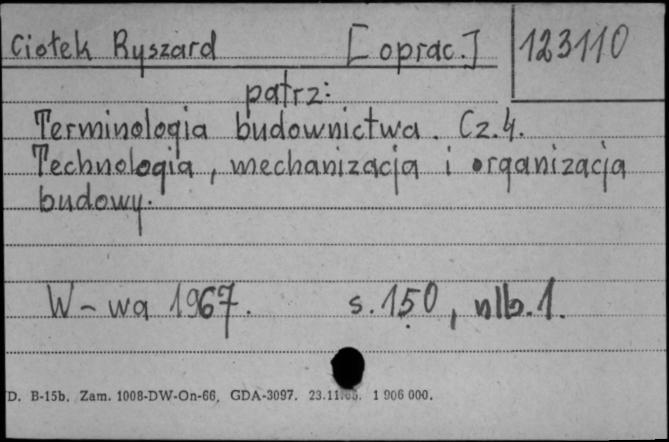 Ciołek Ryszard [oprac.] 123110
patrz:
Terminologia budownictwa. Cz.4.
Technologia, mechanizacja i organizacja
budowy.
W-wa 1967. s.150, nlb.1.
D. B-15b. Zam. 1008-DW-On-66, GDA-3097. 1 906 000.